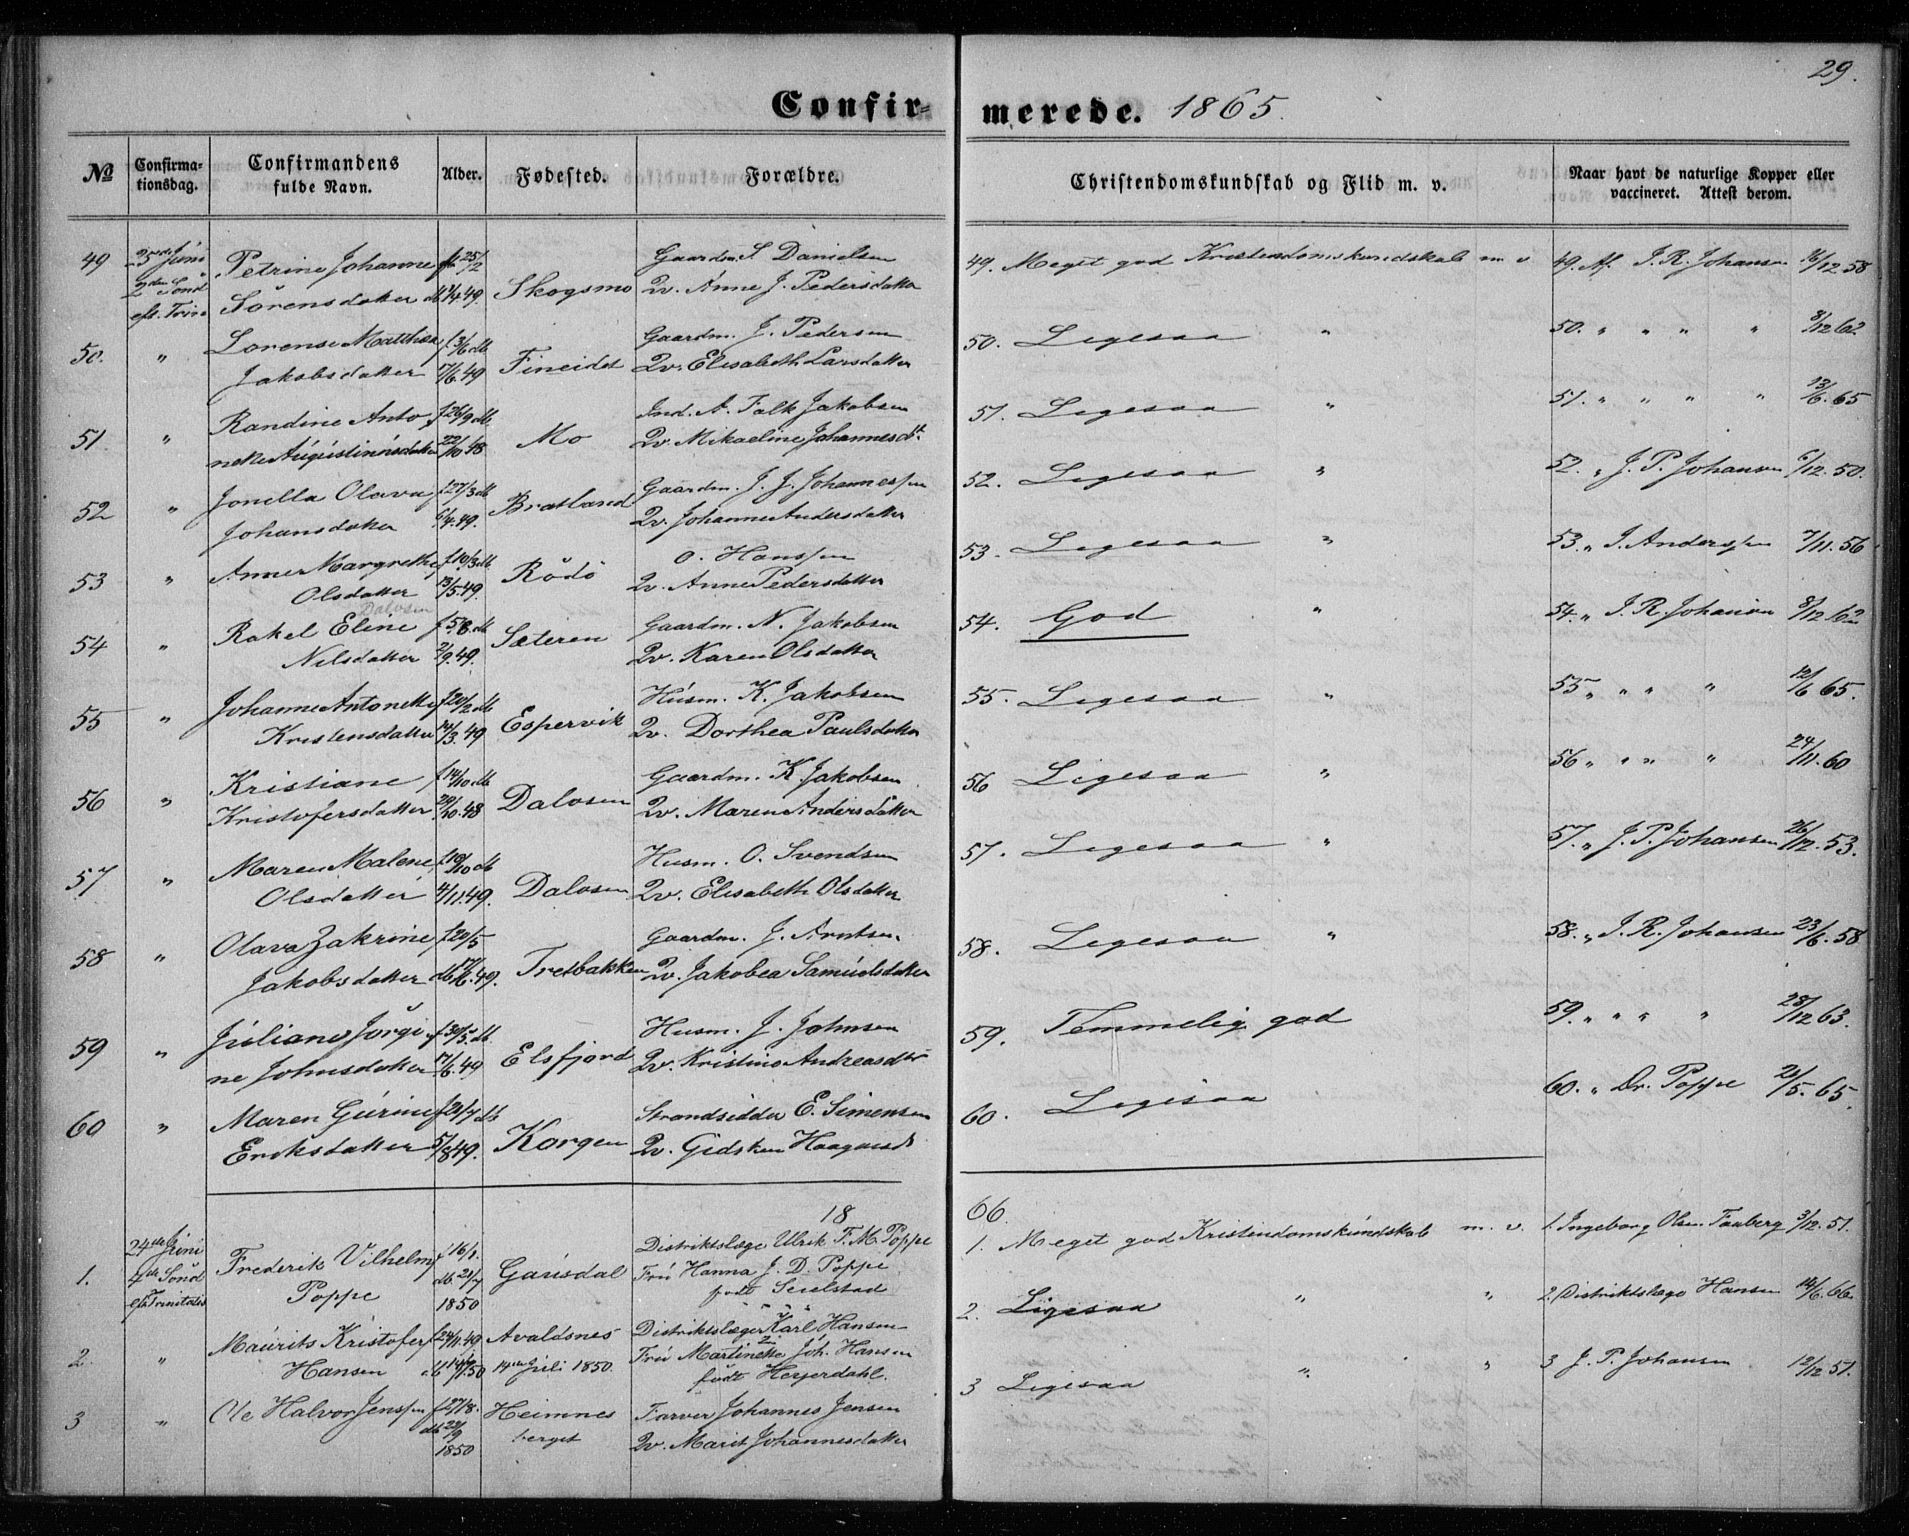 29.
Confir- merede. 1865.
No
Confirma-
tionsdag.
Confirmandens
fulde Navn.
Alder.
Fødested.
Forældre.
Christendomskundskab og Flid m. v.
Naar havt de naturlige Kopper eller
vaccineret. Attest derom.
49 25de Juni Petrine Johanne f. 25/2 Gaardm. S. Danielsen
2den Sönd Sörensdatter db 49. Skogsmo Qv. Anne J. Pedersdatter
eft. Trini
49. Meget god Kristendomskundskab m v 49. Af J. R. Johansen 16/12 58
Lorense Matthea f 3/6 db Gaardm. J. Pedersen
50. " Jakobsdatter 17/6.49 Fineidet Qv. Elisabeth Larsdatter
50. Ligesaa " 50. " " " " 8/12 62
Randine Anto f 26/9 db Ind. A. Falk Jakobsen
51 " nette Augustinusdatter 22/10 48 Mo Qv. Mikaeline Johannesdt.
51. Ligesaa " 51. " " " " 13/6. 65
Jonella Olava f 27/3 db Gaardm. J. J. Johannessen
52 " Johansdatter 6/4.49. Bratland Qv. Johanne Andersdatter
52. Ligesaa " 52. " J. P. Johansen 6/12.50.
Anne Margrethe f 10/3 db O. Hanssen
53 " Olsdatter 13/5.49. Rödö Qv. Anne Pedersdatter
53. Ligesaa " 53. " J. Anderssen 7/11.56
Dalosen
Rakel Eline f 5/8. db Gaardm. N. Jakobsen
54 " Nilsdatter 2/9.49. Sæteren Qv. Karen Olsdatter
54. God " 54. " J. R. Johansen 8/12 62
Johanne Antonette f 20/2 db Husm. K. Jakobsen
55 " Kristensdatter 14/3.49 Espervik Qv. Dorthea Paulsdatter
55. Ligesaa " 55 " " " " 12/6 65.
Kristiane f 14/10 db Gaardm. K. Jakobsen
56 " Kristofersdatter 29/10.48 Dalosen Qv. Maren Andersdatter
56 Ligesaa " 56 " " " " 24/11.60
Maren Malene f 19/10 db Husm. O. Svendsen
57 " Olsdatter 4/11.49. Dalosen Qv. Elisabeth Olsdatter
57. Ligesaa " 57. " J. P. Johansen 26/12.53.
Olava Zakrine f 20/5 Gaardm. J. Arntsen
58 " Jakobsdatter db 17/6.49. Tretbakken Qv. Jakobea Samuelsdatter
58. Ligesaa " 58. " J. R. Johansen 23/6.58
Juliane Jörgi f 30/5. db Husm. J. Johnsen
59 " ne Johnsdatter 17/6.49 Elsfjord Qv. Kristine Andreasdtr
59. Temmelig god 59. " " " " 28/12 63.
Maren Gurine f 21/7 db Strandsidder E. Simensen
60 " Eriksdatter 5/8 49. Korgen Qv. Gidsken Haagensd
60. Ligesaa 60. " Dr. Poppe 21/5.65.
18 66.
24de Juni Frederik Vilhelm f 16/1. Distriktslæge Ulrik F. M. Poppe
1. 4de Sönd Poppe db. 21/7 Garisdal Frú Hanna J. D. Poppe
eft Trinitatis 1850 födt
1. Meget god Kristendomskundskab m. v. 1. Ingeborg Olsen Fauberg 3/12.51.
Maurits Kristofer f 24/11.49 Avaldsnes Distriktslæge Karl Hansen
2. " Hansen db 14/7.50 14de Juli 1850. Frú Martinette Joh. Hansen
födt Heyerdahl.
2. Ligesaa " " 2. Distriktslæge Hansen 14/6.66.
3 " Ole Halvor Jenssen f 27/8. Heimnes Farver Johannes Jensen
db 22/9 berget Qv. Marit Johannesdatter
1850
3 Ligesaa " " 3 J. P. Johansen 12/12 51.